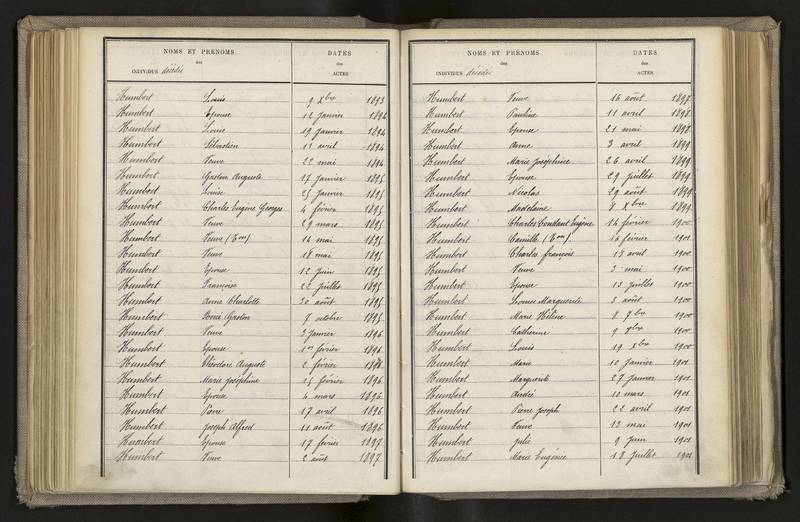 NOMS ET PRÉNOMS
des
INDIVIDUS décédés
DATES
des
ACTES
Humbert Louis 9 Xbre 1893
Humbert Epouse 12 Janvier 1894
Humbert Louis 19 Janvier 1894
Humbert Sébastien 11 avril 1894
Humbert Veuve 22 mai 1894
Humbert Gaston Auguste 17 Janvier 1895
Humbert Louise 25 Janvier 1895
Humbert Charles Eugène Georges 4 février 1895
Humbert Veuve 29 mars 1895
Humbert Veuve 16 mai 1895
Humbert Veuve 18 mai 1895
Humbert Epouse 12 Juin 1895
Humbert Françoise 22 Juillet 1895
Humbert Anne Charlotte 30 août 1895
Humbert René Gaston 7 octobre 1895
Humbert Veuve 3 Janvier 1896
Humbert Epouse 1er février 1896
Humbert Théodore Auguste 2 février 1896
Humbert Marie Joséphine 15 février 1896
Humbert Epouse 6 mars 1896
Humbert Pierre 17 avril 1896
Humbert Joseph Alfred 11 août 1896
Humbert Epouse 17 février 1897
Humbert Veuve 2 août 1897
NOMS ET PRÉNOMS
des
INDIVIDUS décédés
DATES
des
ACTES
Humbert Veuve 16 août 1897
Humbert Pauline 11 avril 1898
Humbert Epouse 21 mai 1898
Humbert Anne 3 avril 1899
Humbert Marie Joséphine 26 avril 1899
Humbert Epouse 29 Juillet 1899
Humbert Nicolas 29 août 1899
Humbert Madeleine 8 Xbre 1899
Humbert Charles Constant Eugène 14 février 1900
Humbert Camille 16 février 1901
Humbert Charles françois 18 avril 1900
Humbert Veuve 3 mai 1900
Humbert Epouse 13 Juillet 1900
Humbert Louise Marguerite 5 août 1900
Humbert Marie Hélène 8 7bre 1900
Humbert Catherine 9 7bre 1900
Humbert Louis 19 Xbre 1900
Humbert Marie 10 Janvier 1901
Humbert Marguerite 27 Janvier 1901
Humbert André 10 mars 1901
Humbert Pierre Joseph 22 avril 1901
Humbert Veuve 13 mai 1901
Humbert Julie 9 Juin 1901
Humbert Marie Eugénie 18 Juillet 1901